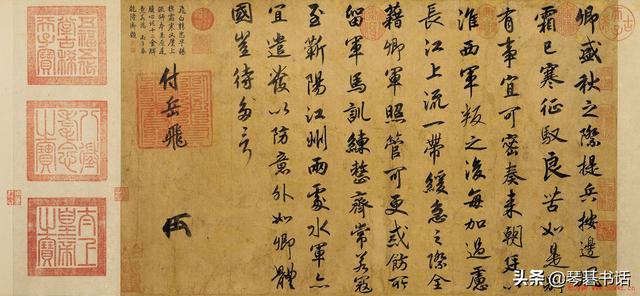 卿盛秋之際提兵按邊風
霜已寒征馭良苦如是別
有事宜可密奏来朝廷以
淮西軍叛之後每加過慮
長江上流一帶緩急之際全
藉卿軍照管可更戒飭所
留軍馬訓練整齊常若寇
至蘄陽江州兩處水軍亦
宜遣發以防意外如卿體
國豈待多言
付岳飛
乾隆御題
五福五代堂古稀天子寶
八徵耄念之寶
太上皇帝之寶
头条 @琴碁书话